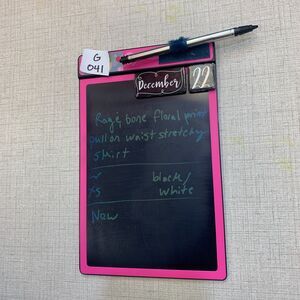 G
041
December 22
Rag & bone floral print
pull on waist stretchy
skirt
black/
XS white
New